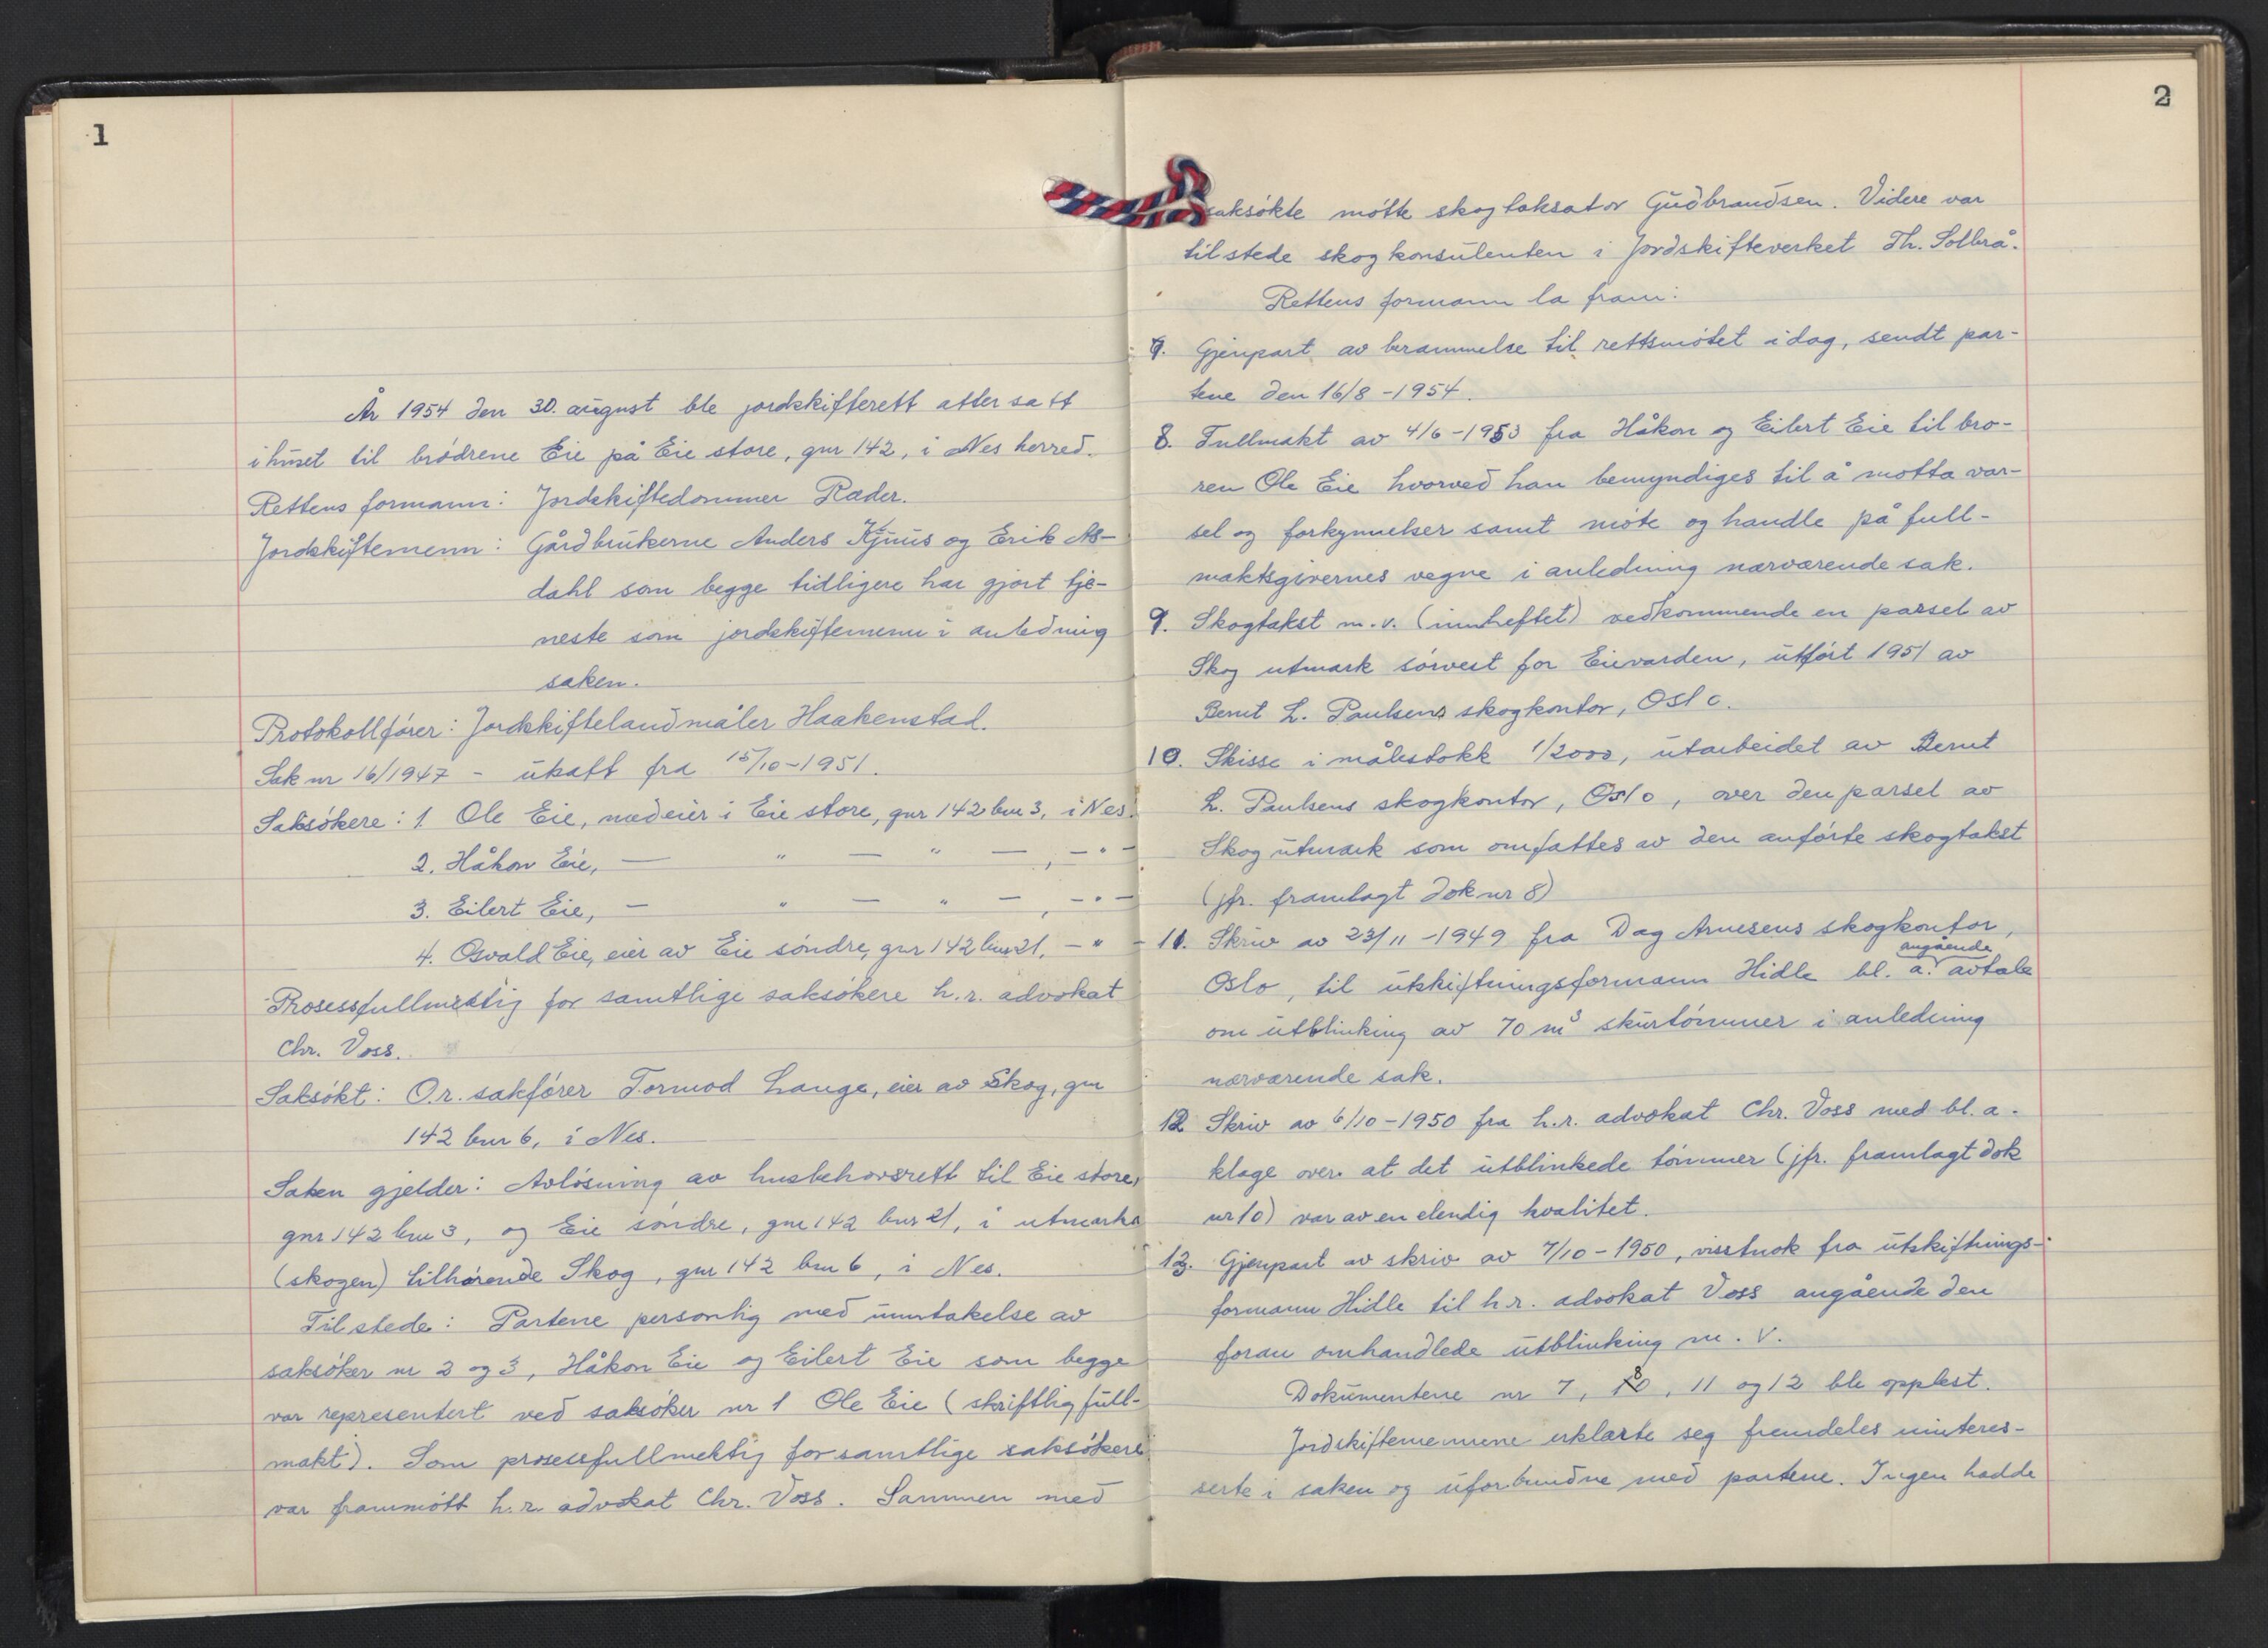 1
År 1954 den 30. august ble jordskifterett atter satt
i huset til brødrene Eie på Eie store, gnr 142, i Nes herred.
Rettens formann: Jordskiftedommer Ræder.
Jordskiftemenn: Gårdbrukerne Anders Kjuus og Erik As-
dahl som begge tidligere har gjort tje-
neste som jordskiftemenn i anledning
saken.
Protokollfører: Jordskiftelandmåler Haakenstad.
Sak nr 16/1947 - utsatt fra 15/10-1951.
Saksøkere: 1. Ole Eie, medeier i Eie store, gnr 142 bnr 3, i Nes.
2. Håkon Eie, — " — " — , — " —
3. Eilert Eie, — " — " — , — " —
4. Osvald Eie, eier av Eie søndre, gnr 142 bnr 21, — " —
Prosessfullmektig for samtlige saksøkere h.r. advokat
Chr. Voss.
Saksøkt: O.r. sakfører Tormod Lange, eier av Skog, gnr
142 bnr 6, i Nes.
Saken gjelder: Avløsning av husbehovsrett til Eie store,
gnr 142 bnr 3, og Eie søndre, gnr 142 bnr 21, i utmarka
(skogen) tilhørende Skog, gnr 142 bnr 6, i Nes.
Tilstede: Partene personlig med unntakelse av
saksøker nr 2 og 3, Håkon Eie og Eilert Eie som begge
var representert ved saksøker nr 1 Ole Eie (skriftlig full-
makt). Som prosessfullmektig for samtlige saksøkere
var frammøtt h.r. advokat Chr. Voss. Sammen med
2
saksøkte møtte skogtaksator Gudbrandsen. Videre var
tilstede skogkonsulenten i Jordskifteverket Th. Solbraa.
Rettens formann la fram:
7. Gjenpart av berammelse til rettsmøtet idag, sendt par-
tene den 16/8-1954.
8. Fullmakt av 4/6-1953 fra Håkon og Eilert Eie til bro-
ren Ole Eie hvorved han bemyndiges til å motta var-
sel og forkynnelser samt møte og handle på full-
maktsgivernes vegne i anledning nærværende sak.
9. Skogtakst m.v. (innheftet) vedkommende en parsel av
Skog utmark sørvest for Eievarden, utført 1951 av
Bernt L. Paulsens skogkontor, Oslo.
10. Skisse i målestokk 1/2000, utarbeidet av Bernt
L. Paulsens skogkontor, Oslo, over den parsel av
Skog utmark som omfattes av den anførte skogtakst
(jfr. framlagt dok nr 8)
11. Skriv av 23/11-1949 fra Dag Arnesens skogkontor,
Oslo, til utskiftningsformann Hidle bl. a. angående avtale
om utblinking av 70 m³ skurtømmer i anledning
nærværende sak.
12 Skriv av 6/10-1950 fra h.r. advokat Chr. Voss med bl.a.
klage over at det utblinkede tømmer (jfr. framlagt dok
nr 10) var av en elendig kvalitet.
13. Gjenpart av skriv av 7/10-1950, visstnok fra utskiftnings-
formann Hidle til h.r. advokat Voss angående den
foran omhandlede utblinking m.v.
Dokumentene nr 7, 8, 11 og 12 ble opplest.
Jordskiftemennene erklærte seg fremdeles uinteres-
serte i saken og uforbundne med partene. Ingen hadde